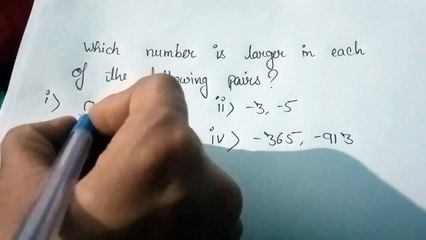 Which number is larger in each
of the following pairs?
i> 0 ii> -3, -5
iv> -365, -913